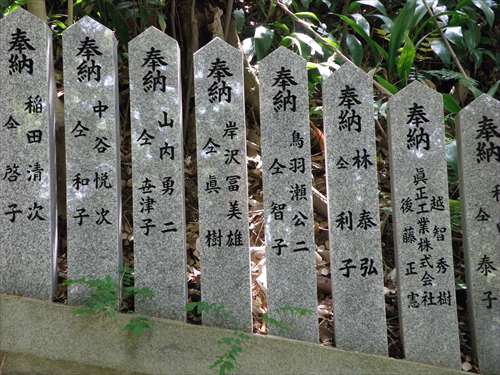 奉納
仝 泰子
奉納
越智秀樹
眞正工業株式会社
後藤正憲
奉納
林 泰弘
仝 利子
奉納
鳥羽瀬公二
仝 智子
奉納
岸沢冨美雄
仝 眞樹
奉納
山内勇二
仝 世津子
奉納
中谷悦次
仝 和子
奉納
稲田清次
仝 啓子